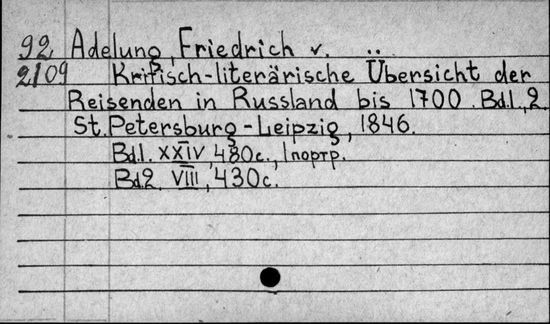 92 Adelung, Friedrich v.
2109 Kritisch-literärische Übersicht der
Reisenden in Russland bis 1700. Bd.1,2.
St.Petersburg-Leipzig, 1846.
Bd.1. XXIV, 480c., 1 портр.
Bd.2. VIII, 430c.